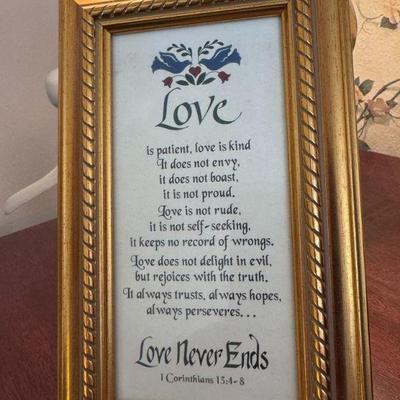 Love
is patient, love is kind
It does not envy,
it does not boast,
it is not proud.
Love is not rude,
it is not self-seeking,
it keeps no record of wrongs.
Love does not delight in evil,
but rejoices with the truth.
It always trusts, always hopes,
always perseveres...
Love Never Ends
1 Corinthians 13:4-8